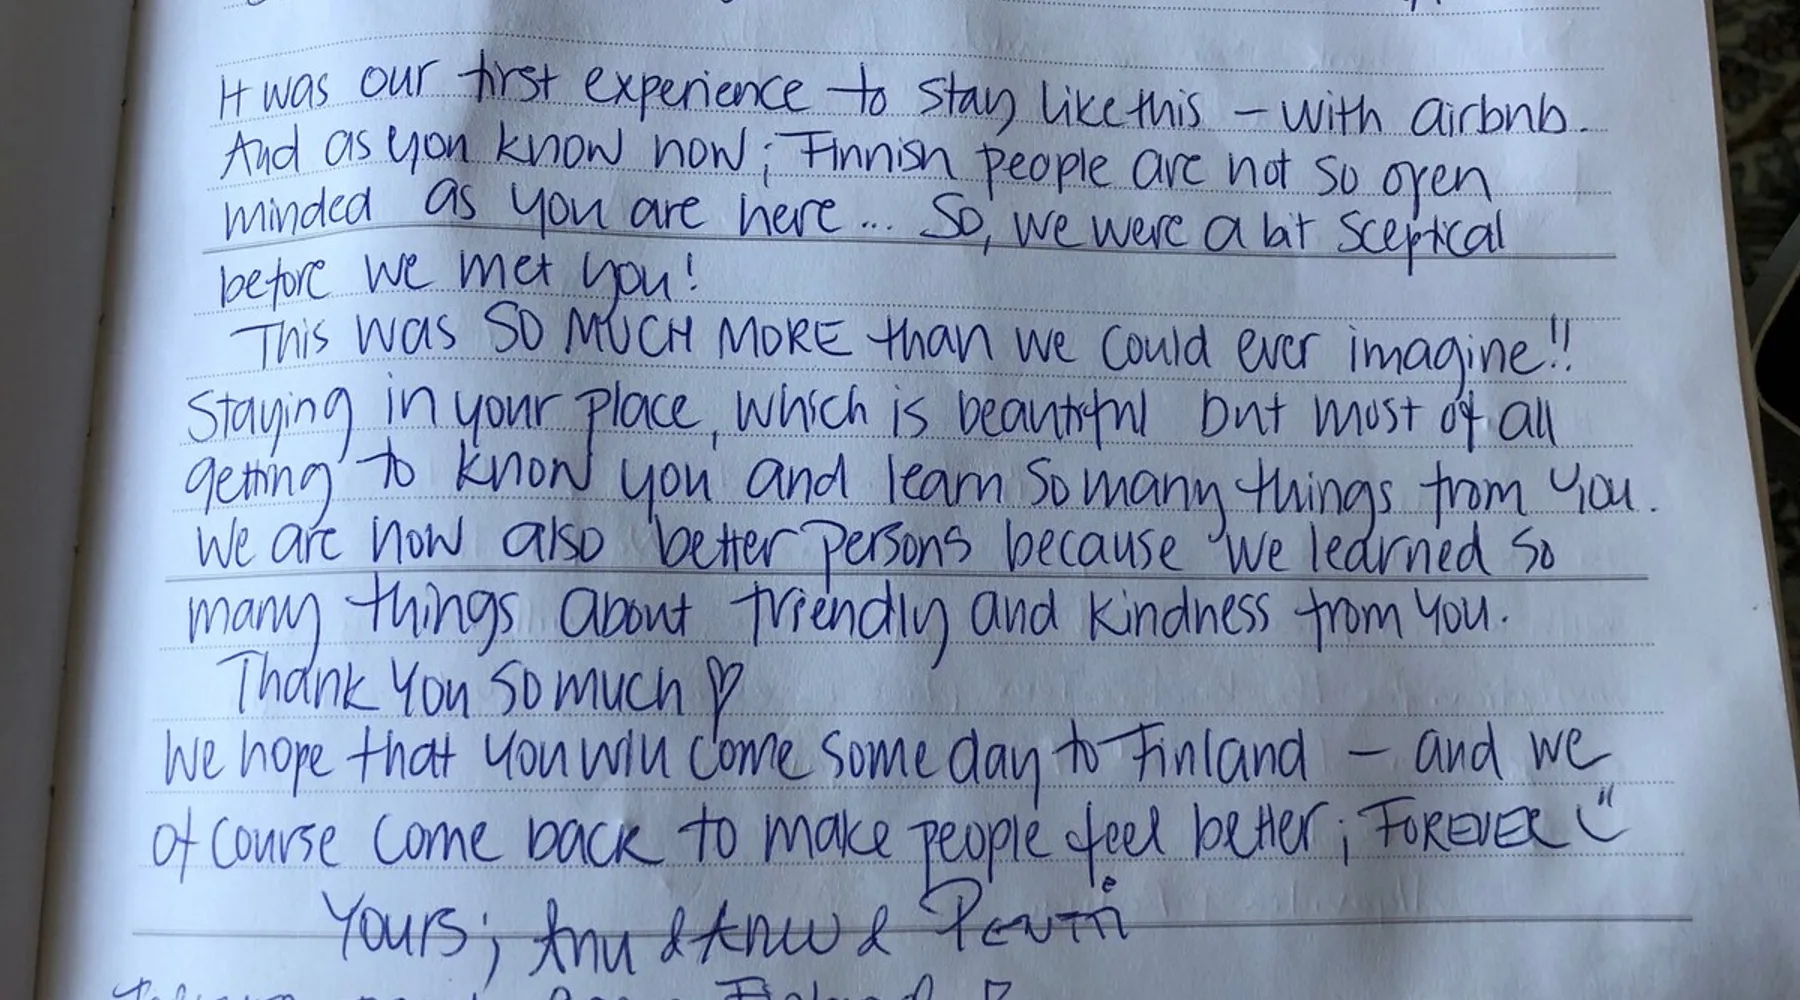 It was our first experience to stay like this – with airbnb.
And as you know now; Finnish people are not so open
minded as you are here... So, we were a bit sceptical
before we met you!
This was SO MUCH MORE than we could ever imagine!!
Staying in your place, which is beautiful but most of all
getting to know you and learn so many things from you.
We are now also better persons because we learned so
many things about friendly and kindness from you.
Thank you so much ♡
We hope that you will come some day to Finland – and we
of course come back to make people feel better; FOREVER ü
Yours; Anu & &